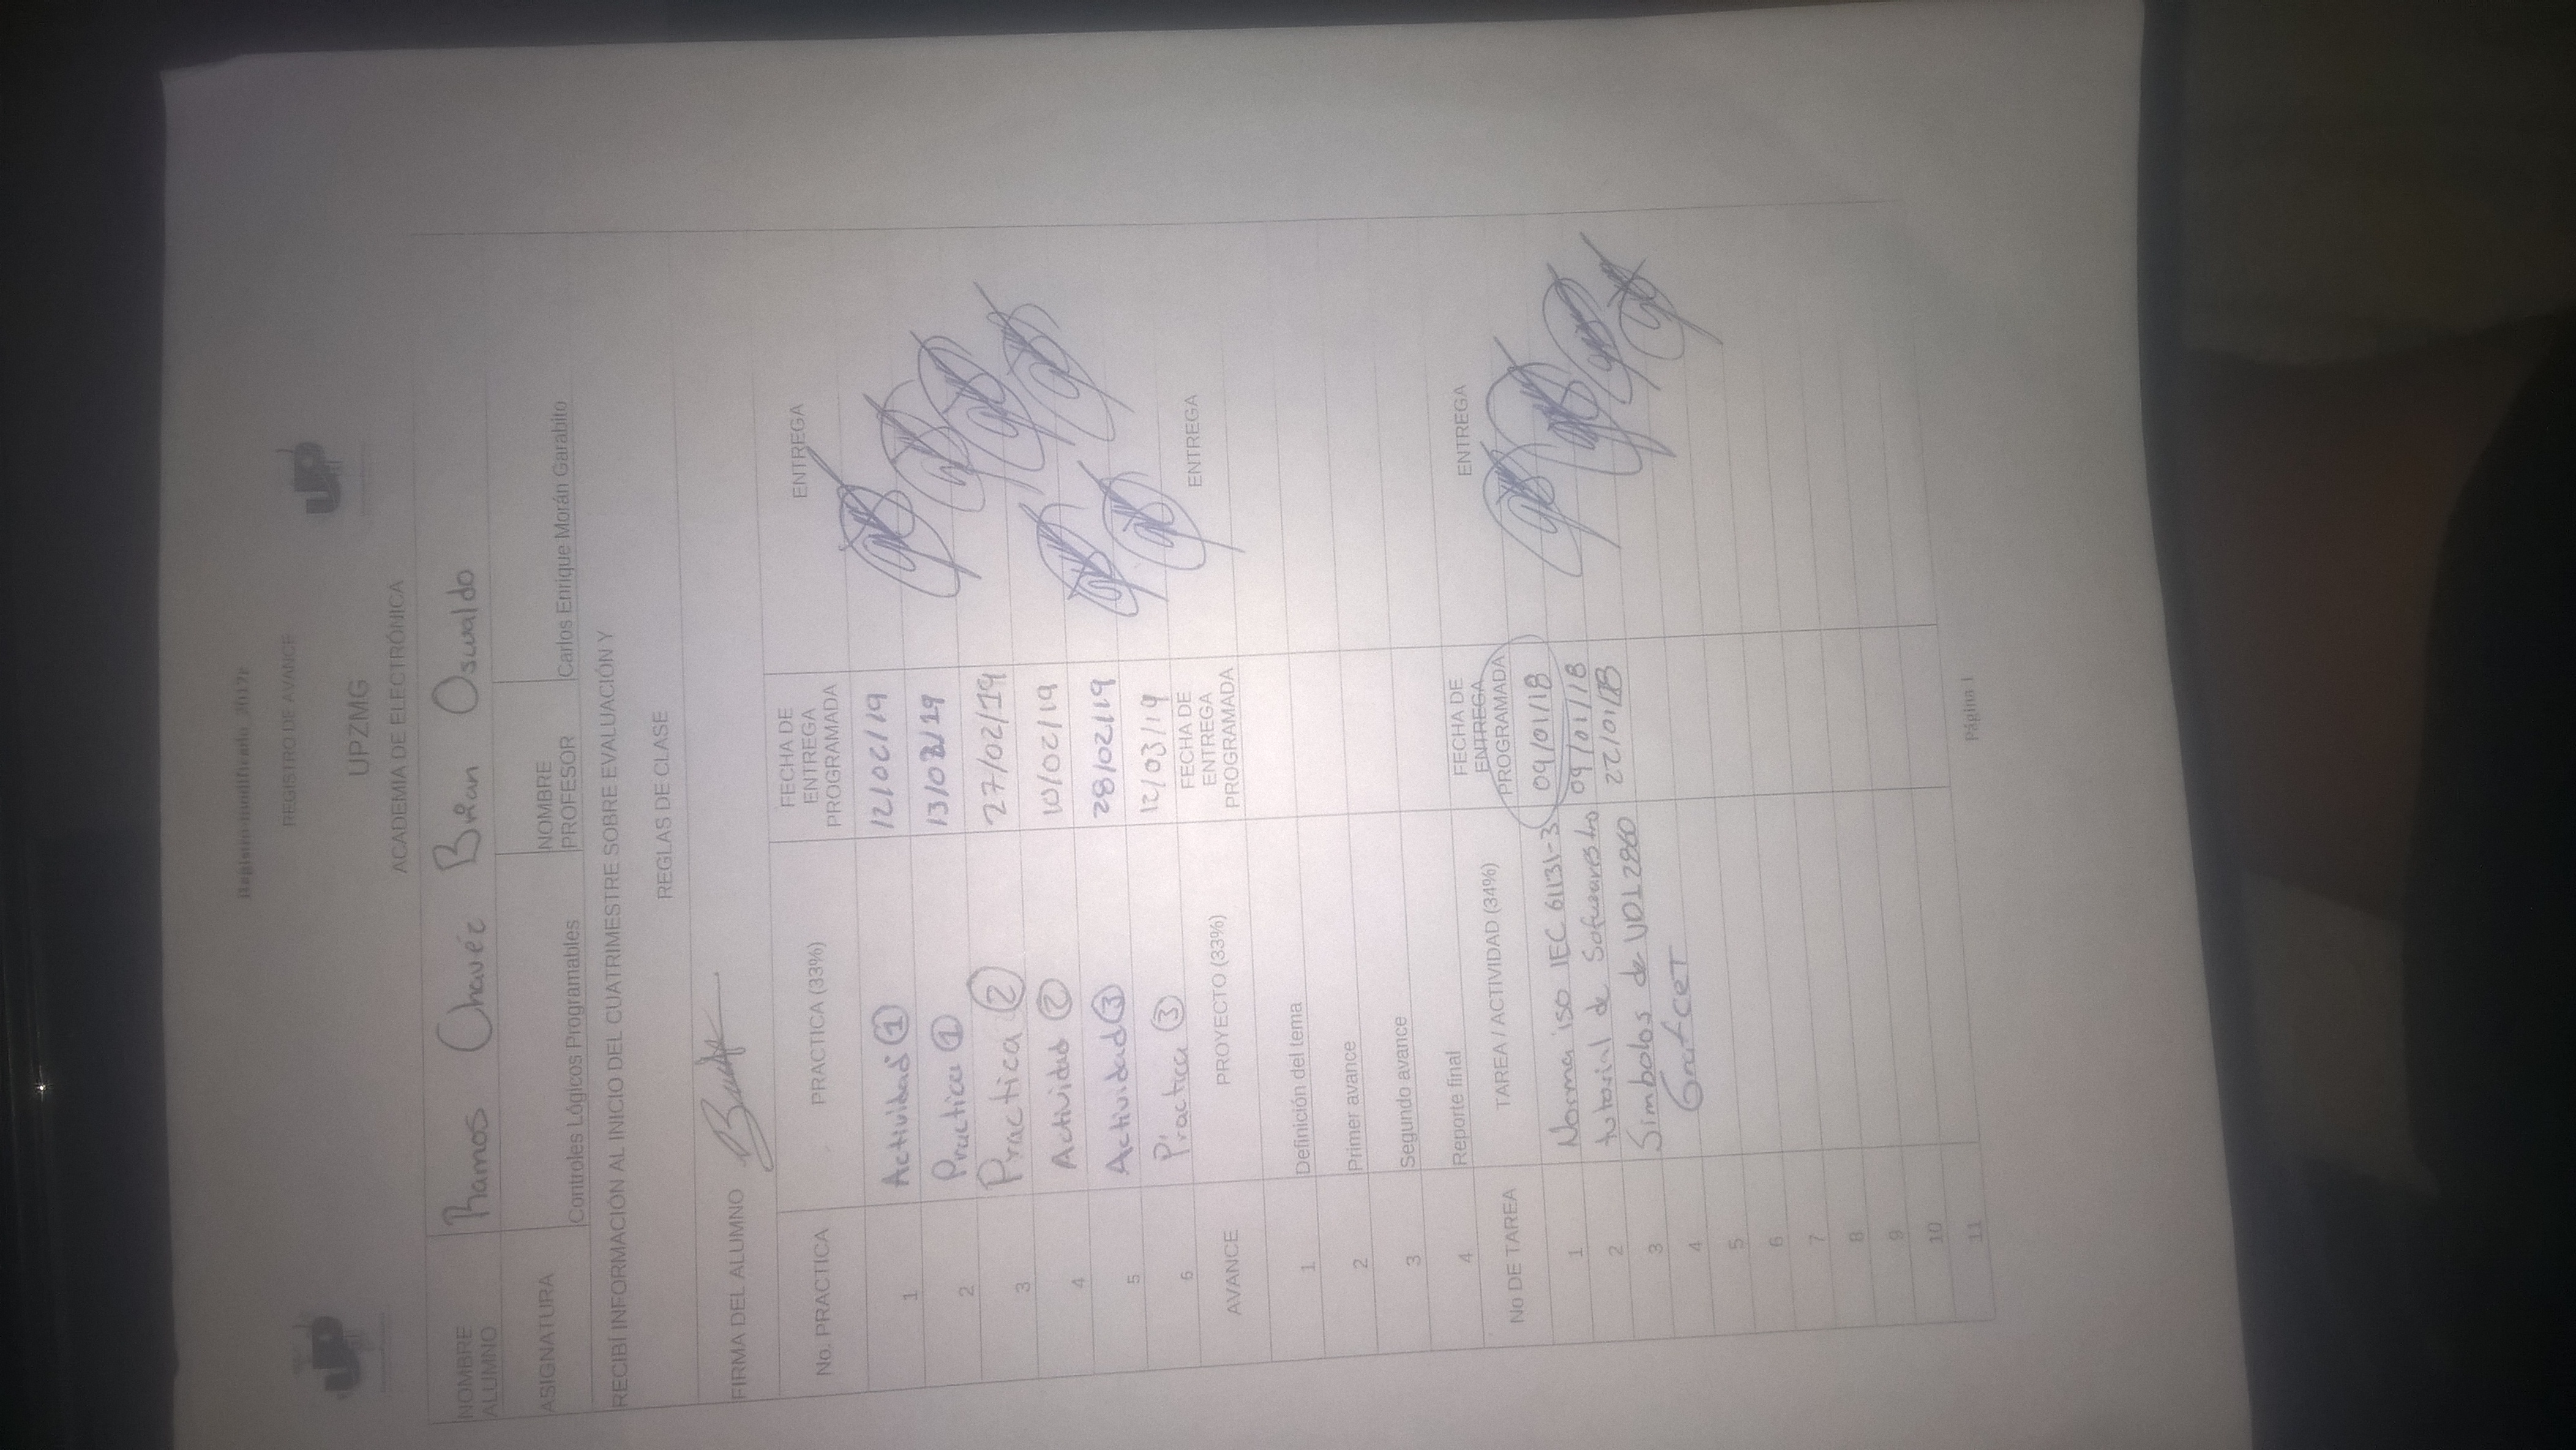 Registro-modificado_2017c
REGISTRO DE AVANCE
UP
UP
UPZMG
ACADEMIA DE ELECTRÓNICA
NOMBRE ALUMNO Ramos Chavéz Brian Oswaldo
ASIGNATURA Controles Lógicos Programables NOMBRE PROFESOR Carlos Enrique Morán Garabito
RECIBÍ INFORMACIÓN AL INICIO DEL CUATRIMESTRE SOBRE EVALUACIÓN Y
REGLAS DE CLASE
FIRMA DEL ALUMNO
No. PRACTICA PRACTICA (33%) FECHA DE ENTREGA PROGRAMADA ENTREGA
1 Actividad 1 12/02/19
2 Practica 1 13/02/19
3 Practica 2 27/02/19
4 Actividad 2 10/02/19
5 Actividad 3 28/02/19
6 Practica 3 12/03/19
AVANCE PROYECTO (33%) FECHA DE ENTREGA PROGRAMADA ENTREGA
1 Definición del tema
2 Primer avance
3 Segundo avance
4 Reporte final
No DE TAREA TAREA / ACTIVIDAD (34%) FECHA DE ENTREGA PROGRAMADA ENTREGA
1 Norma iso IEC 61131-3 09/01/18
2 tutorial de 09/01/18
3 Simbolos de 2860 22/01/18
4 GrafceT
5
6
7
8
9
10
11
Página 1